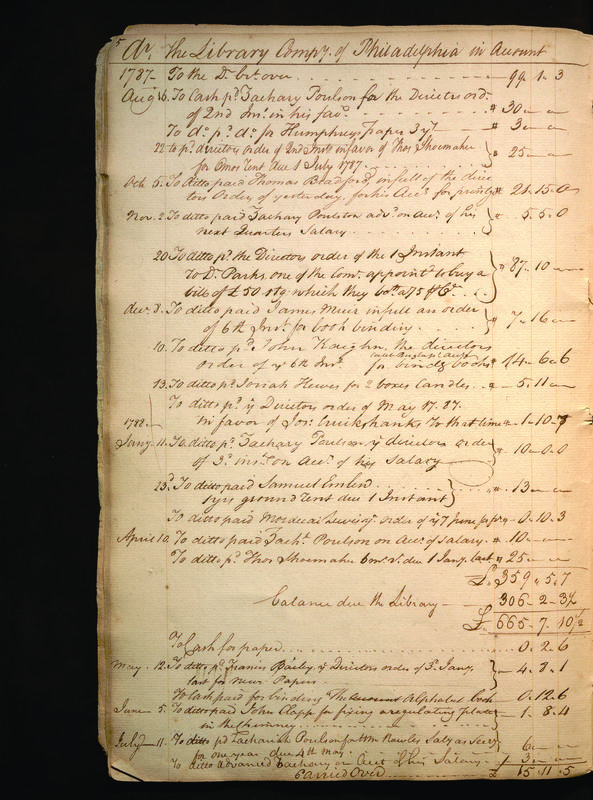 5 Dr. The Library Compy. of Philadelphia in Account
1787 To the Dr. brt. over 99. 1. 3
Augt 16. To Cash pd. Zachary Poulson for the Directrs ordr.
of 2nd Inst. in his favr. " 30 — —
To do. pd. do. for Humphreys paper 3 " 3 — —
22 to pd. directors order of 2nd Inst in favor of Thos Shoemaker
for 6mos Rent due 1 July 1787 " 25 —
Octr 5. To ditto paid Thomas Bradford, in full of the direc
tors Order of yesterday for his Acct. for printg " 21. 15. 0
Novr. 2. To ditto paid Zachary Poulson adv. on acct. of his
next Quarters Salary " 5. 5. 0
20 To ditto pd. the Directors order of the 1 Instant
to Dr. Parke one of the Comte. appointd to buy a
bill of £50 stg. which they bott. a 75 " 87. 10 —
decr. 8. To ditto paid James Muir in full an order
of 6th Inst. for book binding " 7. 16 —
10. To ditto pd. John Kaighn, the directors
order of ye 6th Inst. for bindg books " 14. 6. 6
13. To ditto pd. Josiah Hewes for 2 boxes Candles " 5. 11 —
To ditto pd. ye Directors order of May 17. 87.
in favor of Jos. Cruikshank to that time " 1. 10. 7
1788
Jany. 11. To ditto pd. Zachary Poulson ye directors order
of 3d. inst. on acct. of his Salary " 10. 0. 0
23d To ditto paid Samuel Emlen
1 yrs ground rent due 1 Instant " 13 — —
To ditto paid Mordecai Lewis order of ye 7 June " 0. 10. 3
April 10 To ditto paid Zachy. Poulson on Acct. of Salary " 10 — —
To ditto pd. Thos Shoemaker 6 mos. rt. due 1 Jany. last " 25 — —
£. 359. 5. 7
Balance due the Library — 306. 2. 3½
£. 665. 7. 10½
To Cash for paper 0. 2. 6
May. 12. To ditto pd. Francis Bailey ye Directors order of 3d. Jany.
last for News Papers — 4. 8. 1
To Cash paid for binding the Alphabet book 0. 12. 6
June 5. To ditto paid John Clapp for fixing a regulating plate
in the chimney 1. 8. 4
July 11. To ditto pd Zachariah Poulson for Wm Rawles Saly as Secy
for one year due 4th May. 6 —
To ditto advanced Zachary on Acct of his Salary. 3 —
Carried Over £ 15. 11. 5